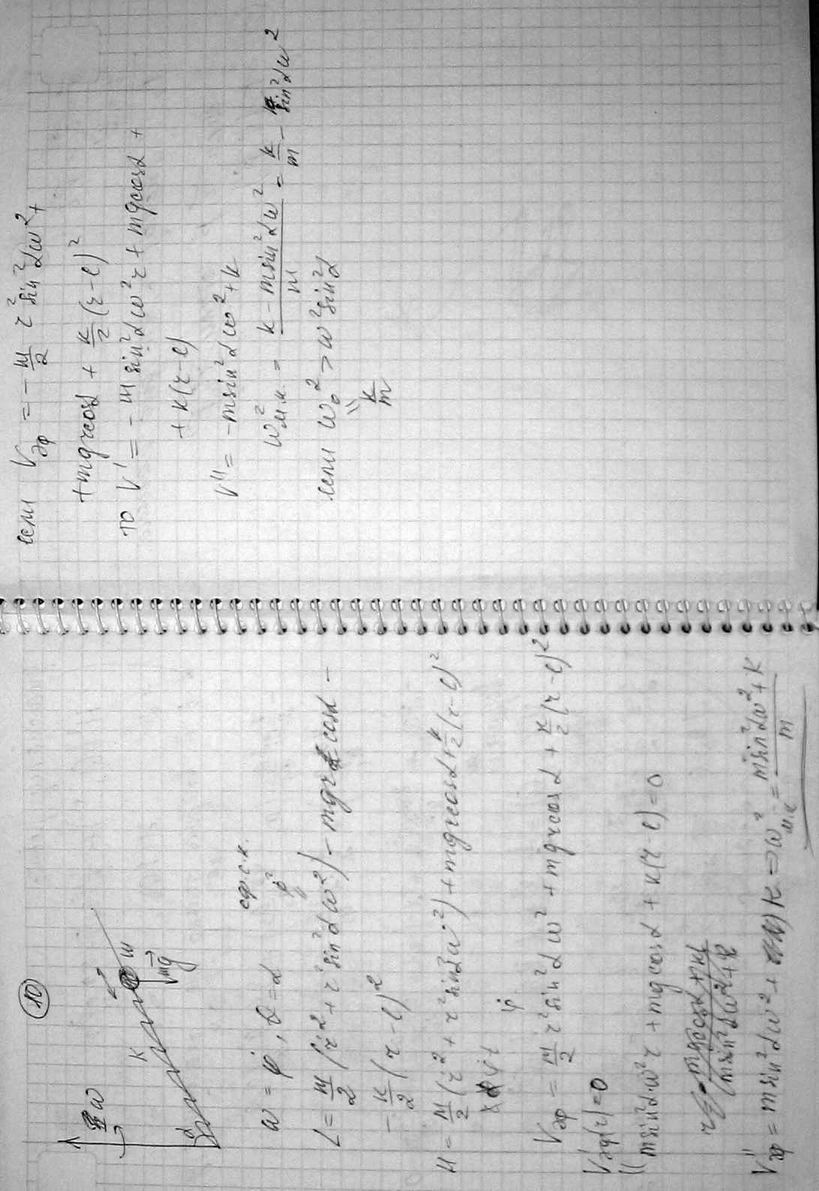 10
ω
K
m
mg
α
ω = φ̇, θ = α
сф.с.к.
L = m/2 (ṙ² + r² sin²α ω²) − mgr cosα −
− k/2 (r − l)²
H = m/2 (ṙ² + r² sin²α ω²) + mgr cosα + k/2 (r − l)²
Vэф = m/2 r² sin²α ω² + mgr cosα + k/2 (r − l)²
V'эф(r) = 0
m sin²α ω² r + mg cosα + k(r − l) = 0
V''эф = m sin²α ω² + k ⇒ ω²м.к. = (m sin²α ω² + k)/m
если Vэф = − m/2 r² sin²α ω² +
+ mgr cosα + k/2 (r − l)²
то V' = − m sin²α ω² r + mg cosα +
+ k(r − l)
V'' = − m sin²α ω² + k
ω²м.к. = (k − m sin²α ω²)/m = k/m − sin²α ω²
если ω₀² > ω² sin²α
k/m